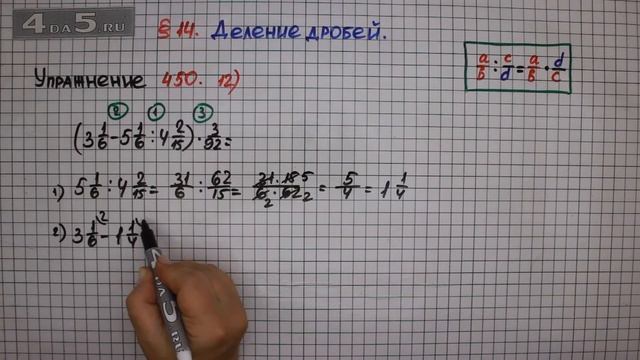 4DA5.RU
§ 14. Деление дробей.
a/b : c/d = a/b · d/c
Упражнение 450. 12)
2 1 3
(3 1/6 - 5 1/6 : 4 2/15) · 3/92 =
1) 5 1/6 : 4 2/15 = 31/6 : 62/15 = 31 · 15 5/6 2 · 62 2 = 5/4 = 1 1/4
2) 3 1/6 2 - 1 1/4